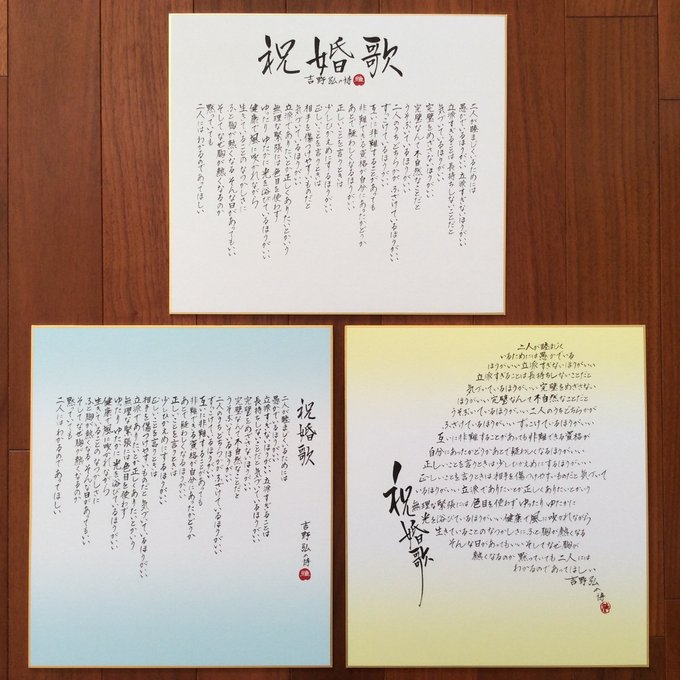 祝婚歌
吉野弘の詩
二人が睦まじくいるためには
愚かでいるほうがいい 立派すぎないほうがいい
立派すぎることは長持ちしないことだと
気づいているほうがいい
完璧をめざさないほうがいい
完璧なんて不自然なことだと
うそぶいているほうがいい
二人のうち どちらかが ふざけているほうがいい
ずっこけているほうがいい
互いに非難することがあっても
非難できる資格が自分にあったかどうか
あとで疑わしくなるほうがいい
正しいことを言うときは
少しひかえめにするほうがいい
正しいことを言うときは
相手を傷つけやすいものだと
気づいているほうがいい
立派でありたいとか正しくありたいとかいう
無理な緊張には色目を使わず
ゆったり ゆたかに 光を浴びているほうがいい
健康で風に吹かれながら
生きていることのなつかしさに
ふと胸が熱くなる そんな日があってもいい
そしてなぜ胸が熱くなるのか
黙っていても
二人にはわかるのであってほしい
祝婚歌
吉野弘の詩
二人が睦まじくいるためには
愚かでいるほうがいい
立派すぎないほうがいい 立派すぎることは
長持ちしないことだと気づいているほうがいい
完璧をめざさないほうがいい
完璧なんて不自然なことだと
うそぶいているほうがいい
二人のうちどちらかがふざけているほうがいい
ずっこけているほうがいい
互いに非難することがあっても
非難できる資格が自分にあったかどうか
あとで疑わしくなるほうがいい
正しいことを言うときは
少しひかえめにするほうがいい
正しいことを言うときは
相手を傷つけやすいものだと 気づいているほうがいい
立派でありたいとか正しくありたいとかいう
無理な緊張には色目を使わず
ゆったり ゆたかに 光を浴びているほうがいい
健康で風に吹かれながら
生きていることのなつかしさに
ふと胸が熱くなる そんな日があってもいい
そしてなぜ胸が熱くなるのか 黙っていても
二人にはわかるのであってほしい
二人が睦まじく
いるためには愚かでいる
ほうがいい立派すぎないほうがいい
立派すぎることは長持ちしないことだと
気づいているほうがいい完璧をめざさない
ほうがいい完璧なんて不自然なことだと
うそぶいているほうがいい二人のうちどちらかが
ふざけているほうがいいずっこけているほうがいい
互いに非難することがあっても非難できる資格が
自分にあったかどうかあとで疑わしくなるほうがいい
正しいことを言うときは少しひかえめにするほうがいい
正しいことを言うときは相手を傷つけやすいものだと気づいて
いるほうがいい立派でありたいとか正しくありたいとかいう
無理な緊張には色目を使わずゆったりゆたかに
光を浴びているほうがいい健康で風に吹かれながら
生きていることのなつかしさにふと胸が熱くなる
そんな日があってもいいそしてなぜ胸が
熱くなるのか黙っていても二人には
わかるのであってほしい
吉野弘の詩
祝婚歌